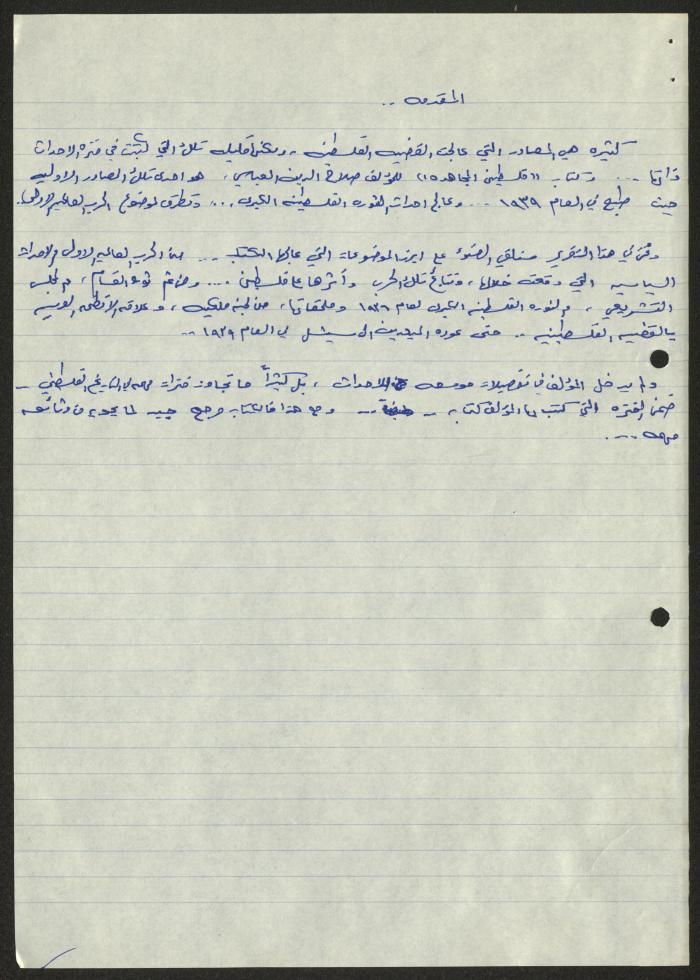 المقدمه ..
كثيره هي المصادر التي عالجت القضيه الفلسطينيه ، ولكن قليله تلك التي كتبت في فتره الاحداث
ذاتها ... وكتاب "فلسطين المجاهده" للمؤلف صلاح الدين العباسي ، هو احدى تلك المصادر الاوليه
حيث طبع في العام ١٩٣٩ ... وعالج احداث الثوره الفلسطينيه الكبرى ... وتطرق لموضوع الحرب العالميه الاولى.
وفي هذا التقرير سنلقي الضوء على ابرز الموضوعات التي عالجها الكتاب ... من الحرب العالميه الاولى والاحداث
السياسيه التي وقعت خلالها ، ونتائج تلك الحرب وأثرها على فلسطين .... ومن ثم ثوره القسام ، والمجلس
التشريعي ، والثوره الفلسطينيه الكبرى لعام ١٩٣٦ وملحقاتها ، من لجنه ملكيه ، وعلاقه الانظمه العربيه
بالقضيه الفلسطينيه .. حتى عوده المبعدين الى سيشل في العام ١٩٣٩ ..
ولم يدخل المؤلف في تفصيلات موسعه للاحداث ، بل كثيراً ما تجاوز فترات مهمه في التاريخ الفلسطيني ..
ضمن الفتره التي كتب بها المؤلف كتابه .. ومع هذا فالكتاب مرجع جيد لما يحويه من وثائق
مهمه ....